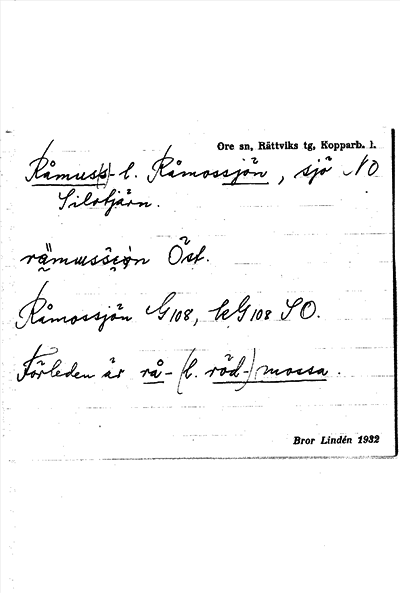 Ore sn, Rättviks tg, Kopparb. l.
Råmus(s)- l. Råmossjön, sjö NO
Silotjärn.
Öst.
Råmossjön G108, kG108 SO.
Förleden är rå- (l. röd-) mossa.
Bror Lindén 1932